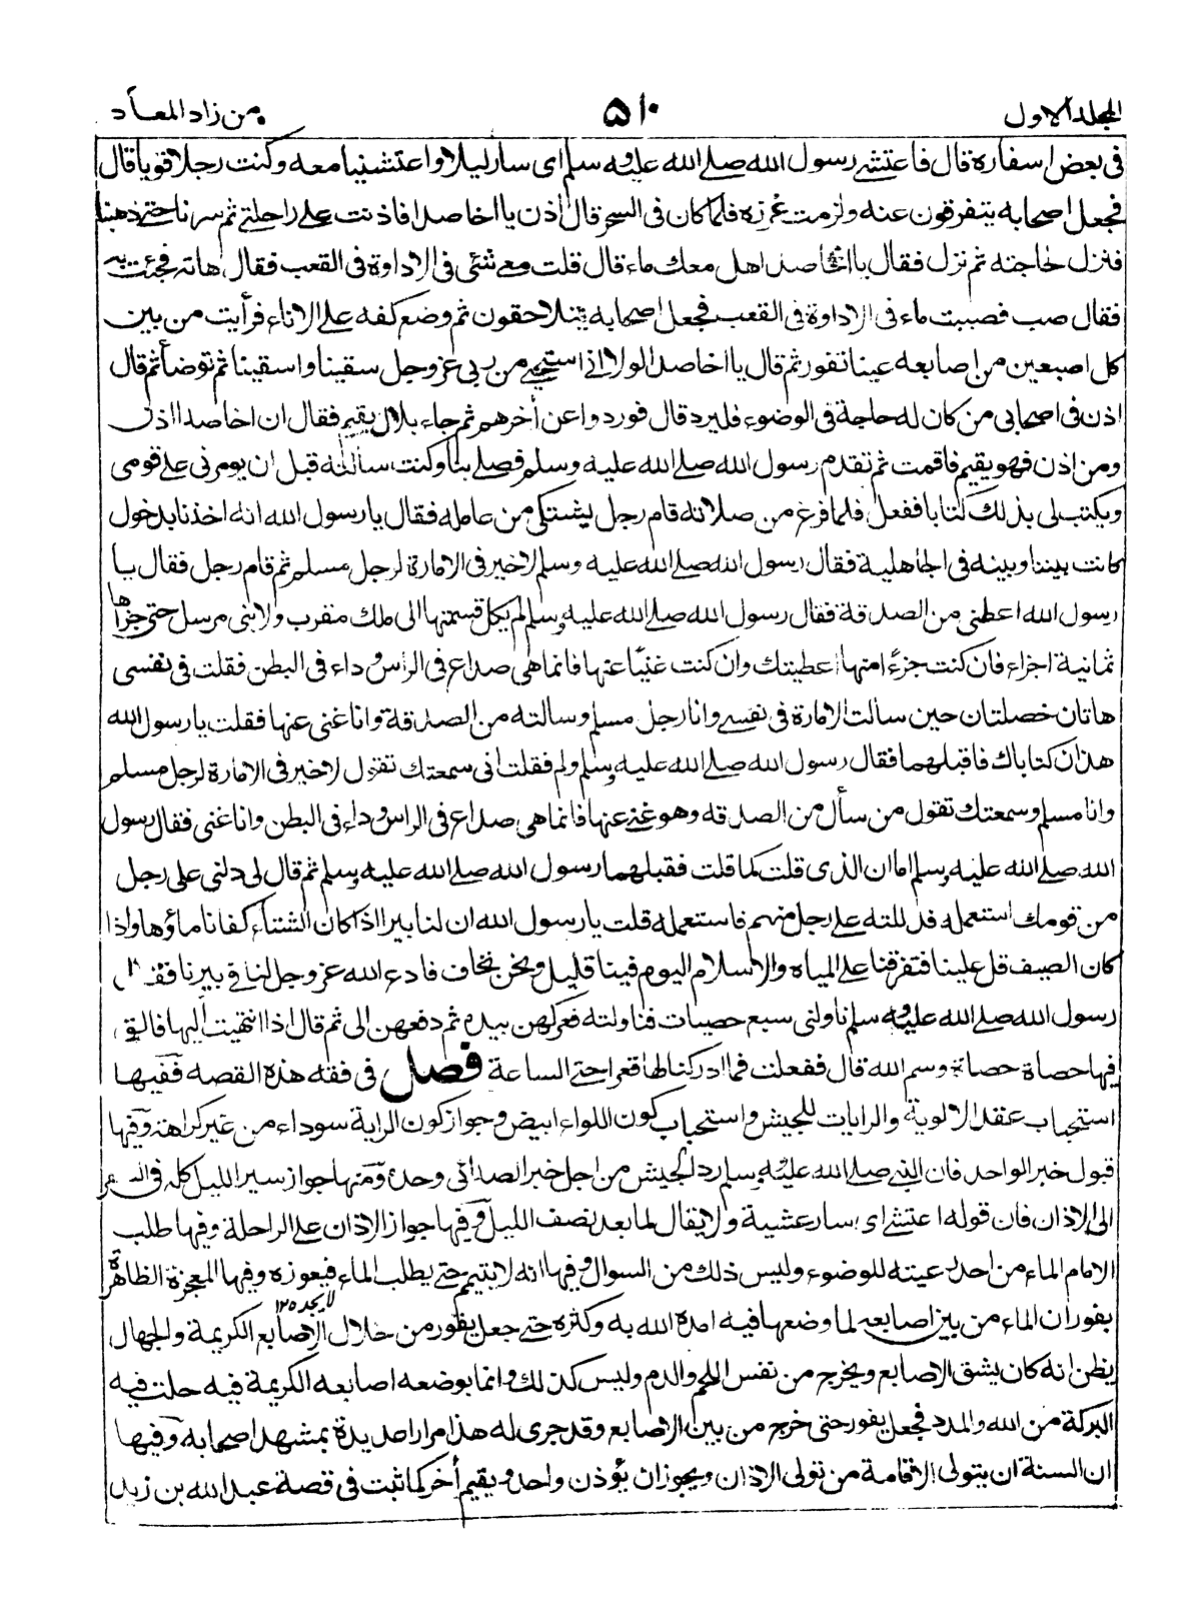 المجلد الاول
۵۱۰
من زاد المعاد
فى بعض اسفاره قال فاعتشے رسول الله صلے الله عليه وسلم اى سار ليلا واعتشينا معه وكنت رجلا قويا قال
فجعل اصحابه يتفرقون عنه ولزمت غرزه فلما كان فى السحر قال اذن يا اخا صدا فاذنت على راحلتى ثم سرنا حتے ذهبنا
فنزل لحاجته ثم نزل فقال يا اخا صدا هل معك ماء قال قلت معے شئى فى الاداوة فى القعب فقال هاته فجئت به
فقال صب فصببت ماء فى الاداوة فى القعب فجعل اصحابه يتلاحقون ثم وضع كفه على الاناء فرأيت من بين
كل اصبعين من اصابعه عينا تفور ثم قال يا اخا صدا لولا انى استحيے من ربى عز وجل سقينا واسقينا ثم توضأ ثم قال
اذن فى اصحابى من كان له حاجة فى الوضوء فليرد قال فوردوا عن أخرهم ثم جاء بلال يقيم فقال ان اخا صدا اذن
ومن اذن فهو يقيم فاقمت ثم تقدم رسول الله صلے الله عليه وسلم فصلے بنا وكنت سألته قبل ان يومرنى على قومى
ويكتب لى بذلك كتابا ففعل فلما فرغ من صلاته قام رجل يشتكى من عامله فقال يا رسول الله انه اخذنا بدخول
كانت بيننا وبينه فى الجاهلية فقال رسول الله صلے الله عليه وسلم لاخير فى الامارة لرجل مسلم ثم قام رجل فقال يا
رسول الله اعطنى من الصدقة فقال رسول الله صلے الله عليه وسلم لم يكل قسمتها الى ملك مقرب ولا نبى مرسل حتى جزأها
ثمانية اجزاء فان كنت جزءً امنها اعطيتك وان كنت غنيّا عنها فانما هى صداع فى الراس وداء فى البطن فقلت فى نفسى
هاتان خصلتان حين سألت الامارة فى نفسے وانا رجل مسلم وسالته من الصدقة وانا غنى عنها فقلت يا رسول الله
هذان كتاباك فاقبلهما فقال رسول الله صلے الله عليه وسلم ولم فقلت انى سمعتك تقول لاخير فى الامارة لرجل مسلم
وانا مسلم وسمعتك تقول من سأل من الصدقه وهو غنے عنها فانما هى صداع فى الراس وداء فى البطن وانا غنى فقال رسول
الله صلے الله عليه وسلم اما ان الذى قلت كما قلت فقبلهما رسول الله صلے الله عليه وسلم ثم قال لى دلنى على رجل
من قومك استعمله فدللته على رجل منهم فاستعمله قلت يا رسول الله ان لنا بيرا اذا كان الشتاء كفانا ماؤها واذا
كان الصيف قل علينا فتفرقنا على المياه والاسلام اليوم فينا قليل ونحن نخاف فادع الله عز وجل لنا فى بيرنا فقال
رسول الله صلے الله عليه وسلم ناولنى سبع حصيات فناولته فعركهن بيده ثم دفعهن الى ثم قال اذا انتهيت اليها فالق
فيها حصاة حصاة وسم الله قال ففعلت فما ادركنا لها قعرا حتے الساعة فصل فى فقه هذه القصه ففيها
استحباب عقد الالوية والرايات للجيش واستحباب كون اللواء ابيض وجواز كون الراية سوداء من غير كراهة وفيها
قبول خبر الواحد فان النبے صلے الله عليه وسلم رد الجيش من اجل خبر الصدائى وحده ومنها جواز سير الليل كله فى السفر
الى الاذان فان قوله اعتشے اى سار عشية ولا يقال لما بعد نصف الليل وفيها جواز الاذان على الراحلة وفيها طلب
الامام الماء من احد رعيته للوضوء وليس ذلك من السوال وفيها انه لا يتيمم حتے يطلب الماء فيعوزه وفيها المعجزة الظاهرة
لايجد ۱۲۵
بفوران الماء من بين اصابعه لما وضعها فيه امده الله به وكثره حتے جعل يفور من خلال الاصابع الكريمة والجهال
يظن انه كان يشق الاصابع ويخرج من نفس اللحم والدم وليس كذلك وانما بوضعه اصابعه الكريمة فيه حلت فيه
البركة من الله والمدد فجعل يفور حتى خرج من بين الاصابع وقد جرى له هذا مرارا عديدة بمشهد اصحابه وفيها
ان السنة ان يتولى الاقامة من تولى الاذان ويجوز ان يؤذن واحد ويقيم أخر كما ثبت فى قصة عبد الله بن زيد